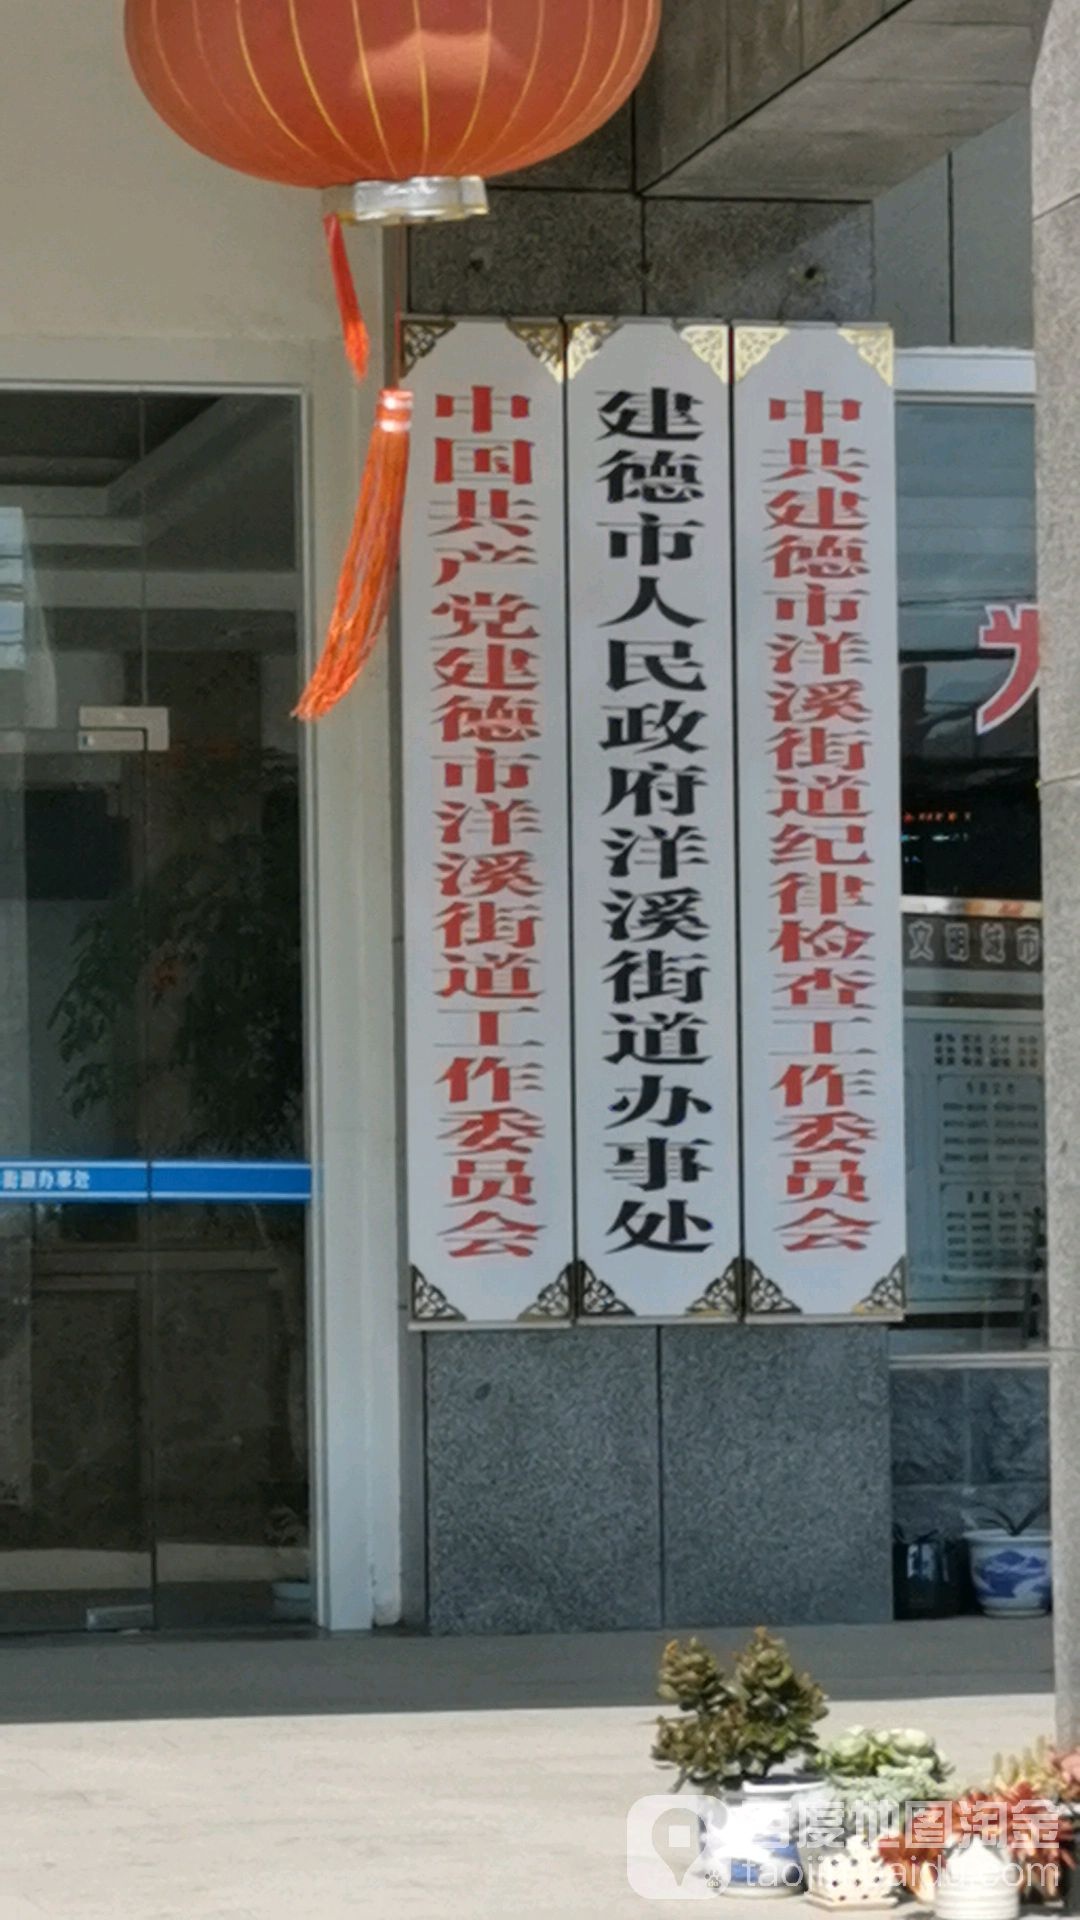 中国共产党建德市洋溪街道工作委员会
建德市人民政府洋溪街道办事处
中共建德市洋溪街道纪律检查工作委员会
街道办事处
文明城市
百度地图淘金
taojin.baidu.com